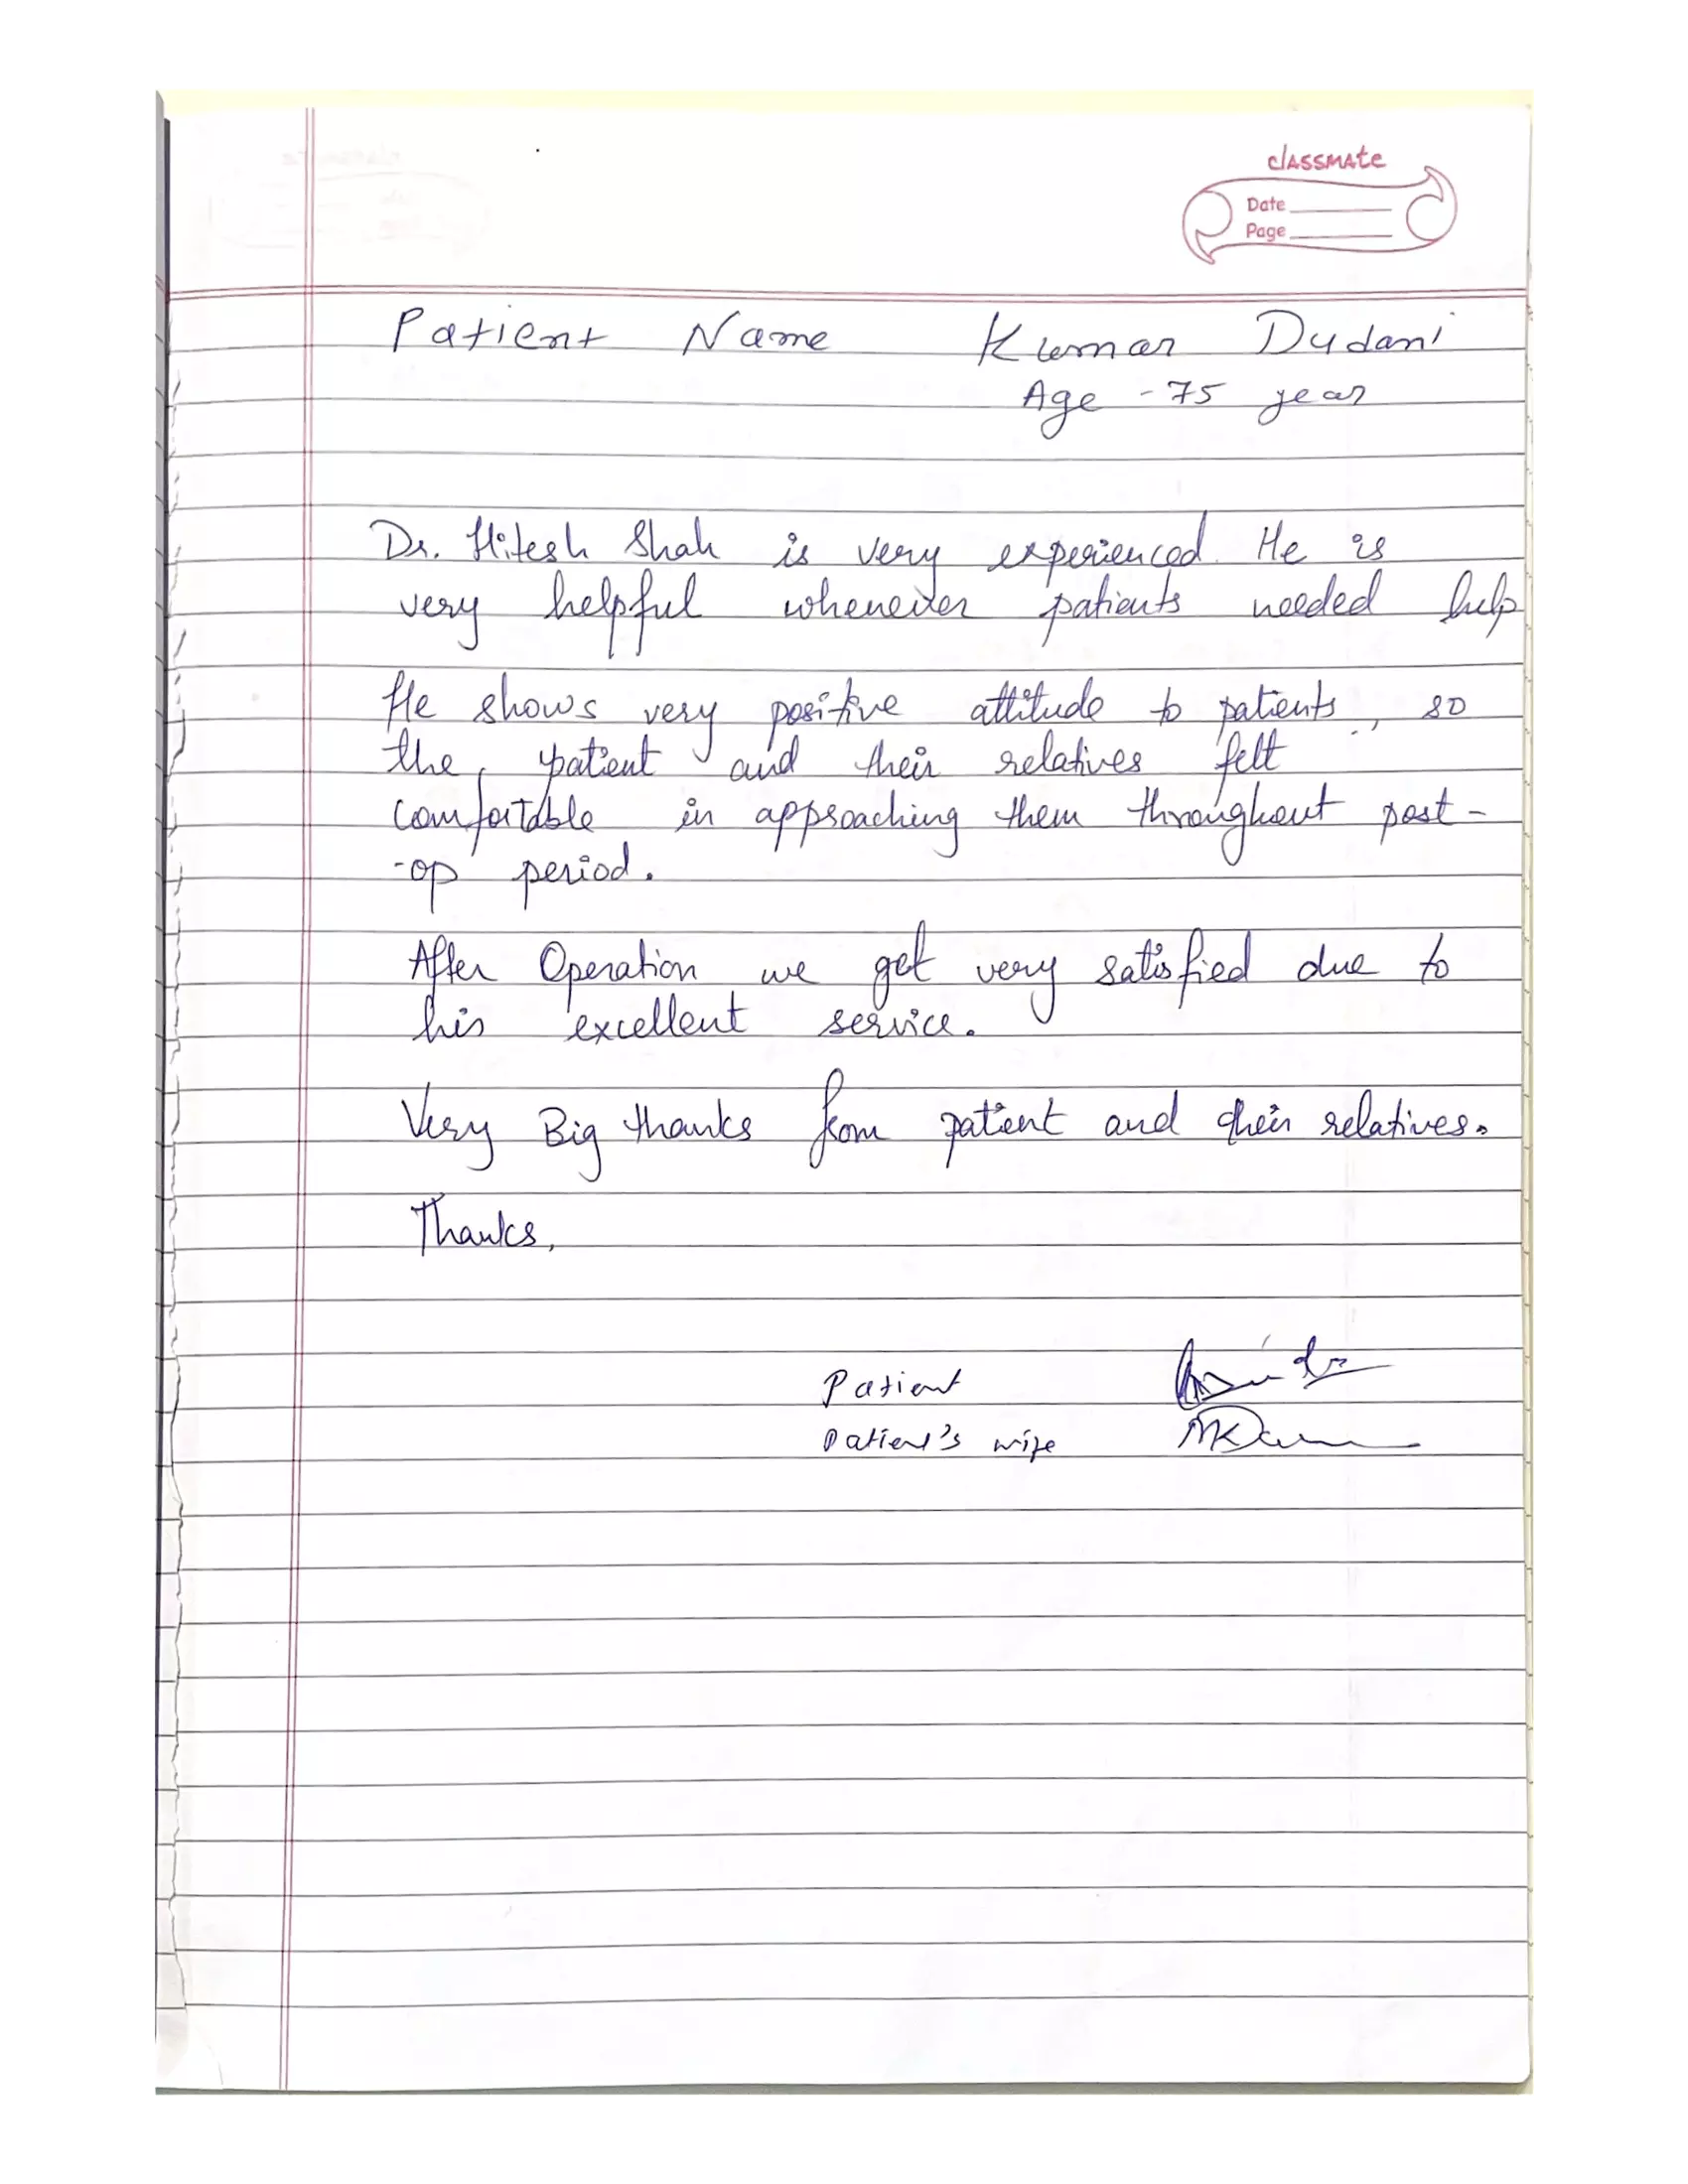 classmate
Date
Page
Patient Name Kumar Dudani
Age - 75 year
Dr. Hitesh Shah is very experienced. He is
very helpful whenever patients needed help
He shows very positive attitude to patients, so
the patient and their relatives felt
comfortable in approaching them throughout post-
-op period.
After Operation we get very satisfied due to
his excellent service.
Very Big thanks from patient and their relatives.
Thanks,
Patient
Patient's wife